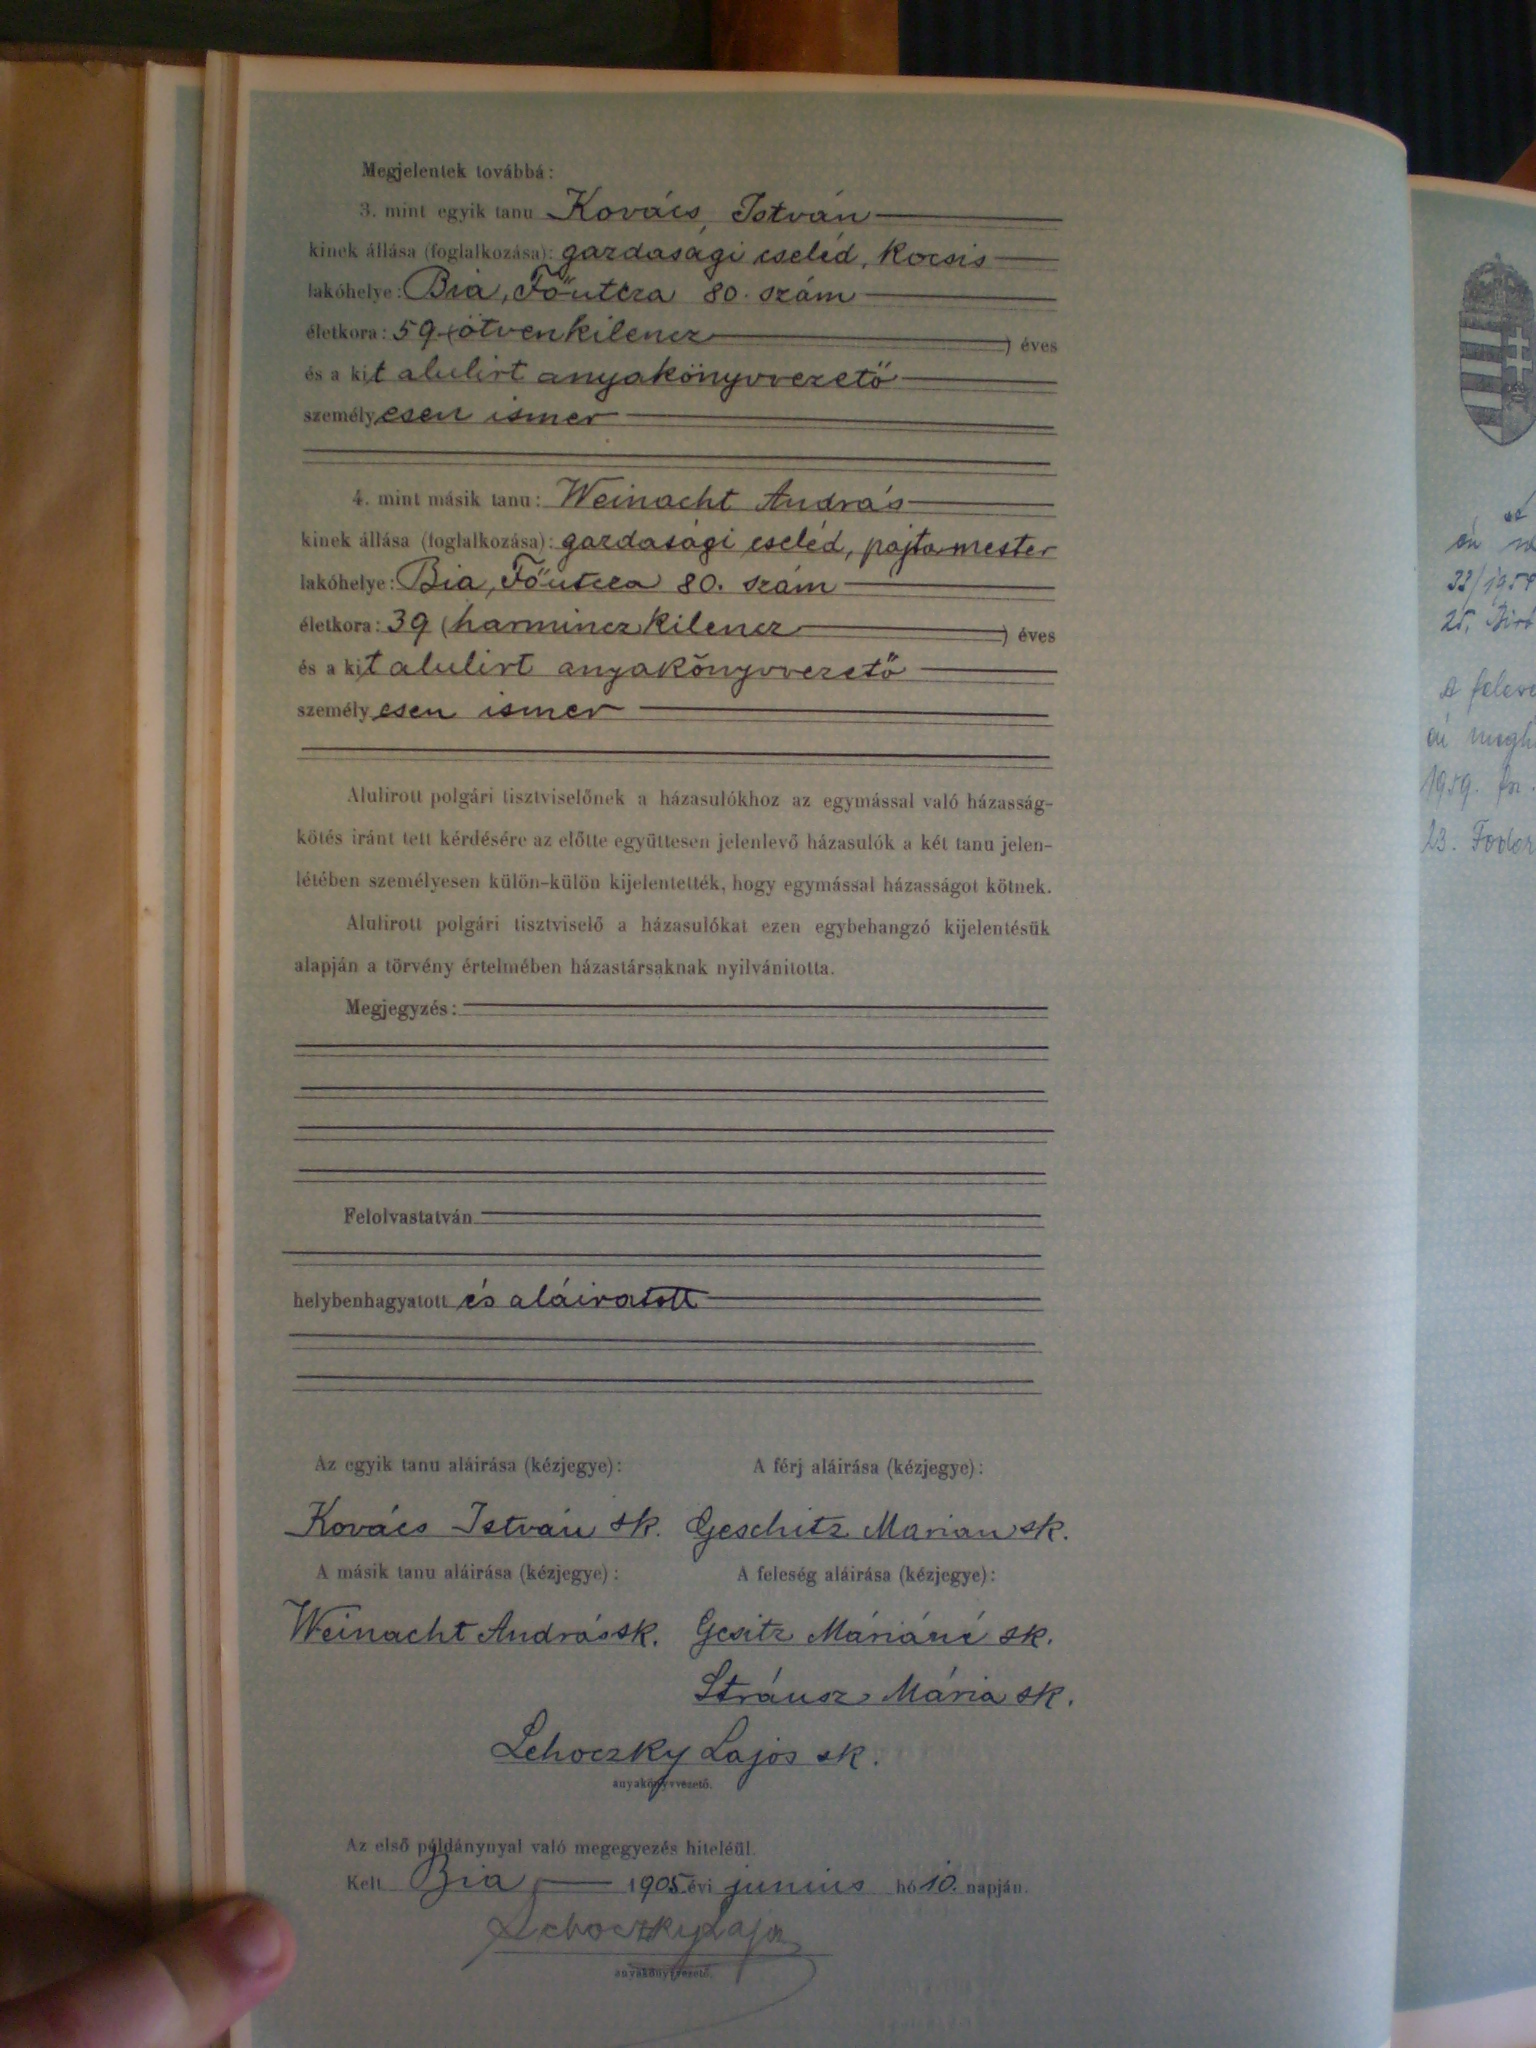 Megjelentek továbbá:
3. mint egyik tanu Kovács, István
kinek állása (foglalkozása): gazdasagi cseléd, kocsis
lakóhelye: Bia, Főutcza 80. szám
életkora: 59 (ötvenkilencz) éves
és a kit alulirt anyakönyvvezető
személyesen ismer
4. mint másik tanu: Weinacht András
kinek állása (foglalkozása): gazdasági cseléd, pajtamester
lakóhelye: Bia, Főutcza 80. szám
életkora: 39 (harmincz kilencz) éves
és a kit alulirt anyakönyvvezető
személyesen ismer
Alulirott polgári tisztviselőnek a házasulókhoz az egymással való házasság-
kötés iránt tett kérdésére az előtte együttesen jelenlevő házasulók a két tanu jelen-
létében személyesen külön-külön kijelentették, hogy egymással házasságot kötnek.
Alulirott polgári tisztviselő a házasulókat ezen egybehangzó kijelentésük
alapján a törvény értelmében házastársaknak nyilvánitotta.
Megjegyzés:
Felolvastatván
helybenhagyatott és aláiratott
Az egyik tanu aláirása (kézjegye): A férj aláirása (kézjegye):
Kovács István sk. Geschitz Marian sk.
A másik tanu aláirása (kézjegye): A feleség aláirása (kézjegye):
Weinacht András sk. Gesitz Máriáné sk.
Stráusz Mária sk.
Lehoczky Lajos sk.
anyakönyvvezető.
Az első példánynyal való megegyezés hiteléül.
Kelt Bia, 1905 évi junius hó 10. napján.
Lehoczky Lajos
anyakönyvvezető.
22/1954
25. Biró
A
1959.
23. Fodor